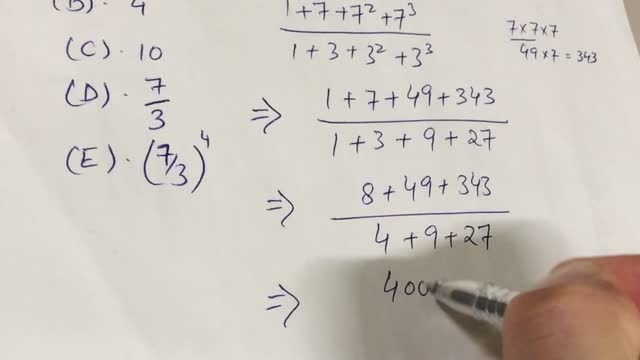 (B). 4
(C). 10
(D). 7/3
(E). (7/3)^4
1+7+7²+7³
1+3+3²+3³
7×7×7
49×7=343
⇒ 1+7+49+343
1+3+9+27
⇒ 8+49+343
4+9+27
⇒ 400